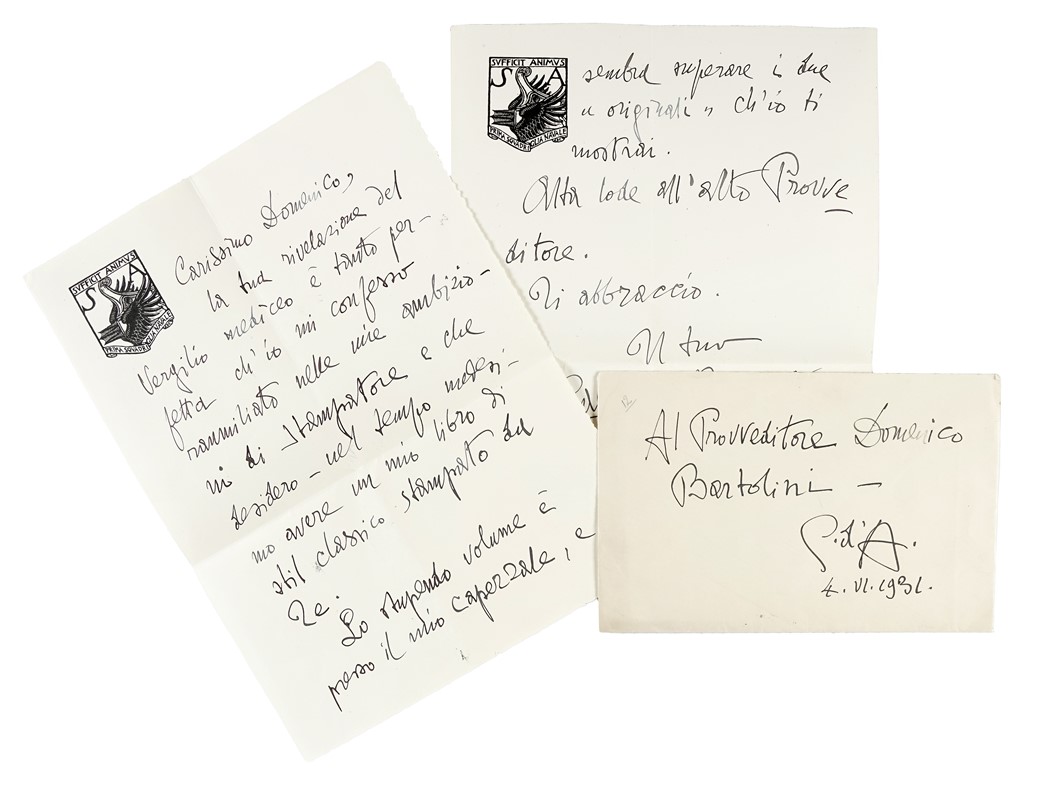 SVFFICIT ANIMVS
S A
PRIMA SQVADRIGLIA NAVALE
Carissimo Domenico,
la tua rivelazione del
Vergilio mediceo è tanto per-
fetta ch'io mi confesso
raumiliato nelle mie ambizio-
ni di stampatore e che
desidero - nel tempo medesi-
mo avere un mio libro di
stil classico stampato da
Te.
Lo stupendo volume è
presso il mio capezzale, e
SVFFICIT ANIMVS
S A
PRIMA SQVADRIGLIA NAVALE
sembra superare i due
« originali » ch'io ti
mostrai.
Alta lode all'alto Provve
ditore.
Ti abbraccio.
Il tuo
Al Provveditore Domenico
Bartolini -
G. d'A.
4. VI. 1931.